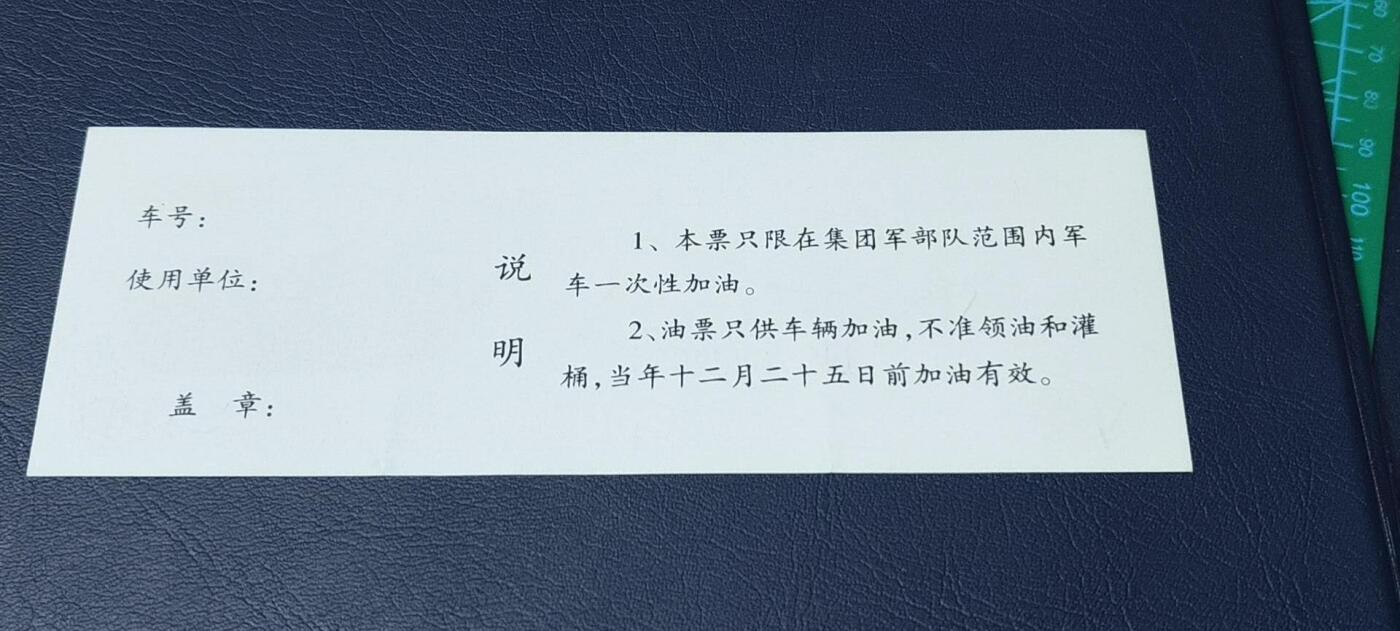 车号：
使用单位：
盖 章：
说
明
1、本票只限在集团军部队范围内军
车一次性加油。
2、油票只供车辆加油，不准领油和灌
桶，当年十二月二十五日前加油有效。
60
70
80
90
100
110